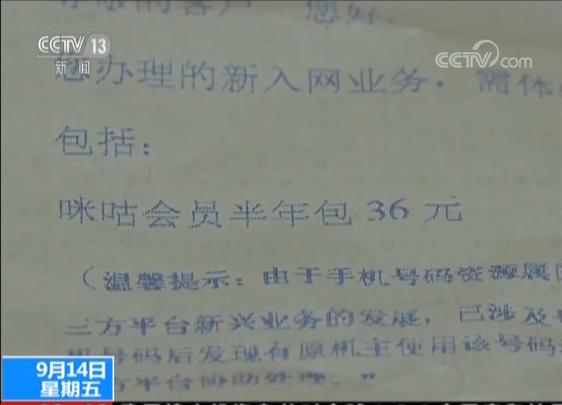 CCTV 13
新闻
CCTV.com
尊敬的客户 您好
您办理的新入网业务，需体
包括：
咪咕会员半年包 36 元
（温馨提示：由于手机号码资源属
三方平台新兴业务的发展，已涉及
机号码后发现有原机主使用该号码
方平台协助处理。”
9月14日
星期五